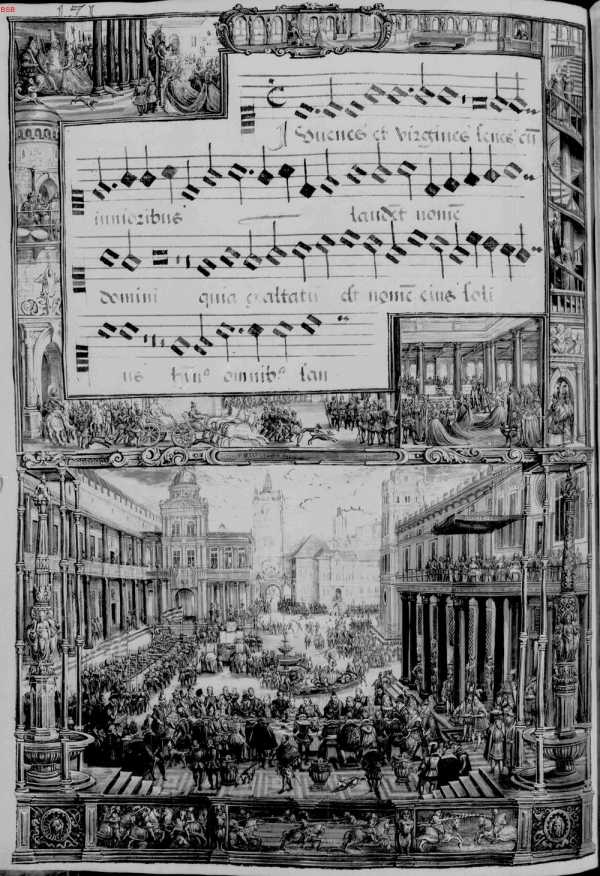 BSB
171
Iuuenes et virgines senes cū
iunioribus laudēt nomē
domini quia exaltatū est nomē eius soli
us hūi⁹ omnib⁹ san